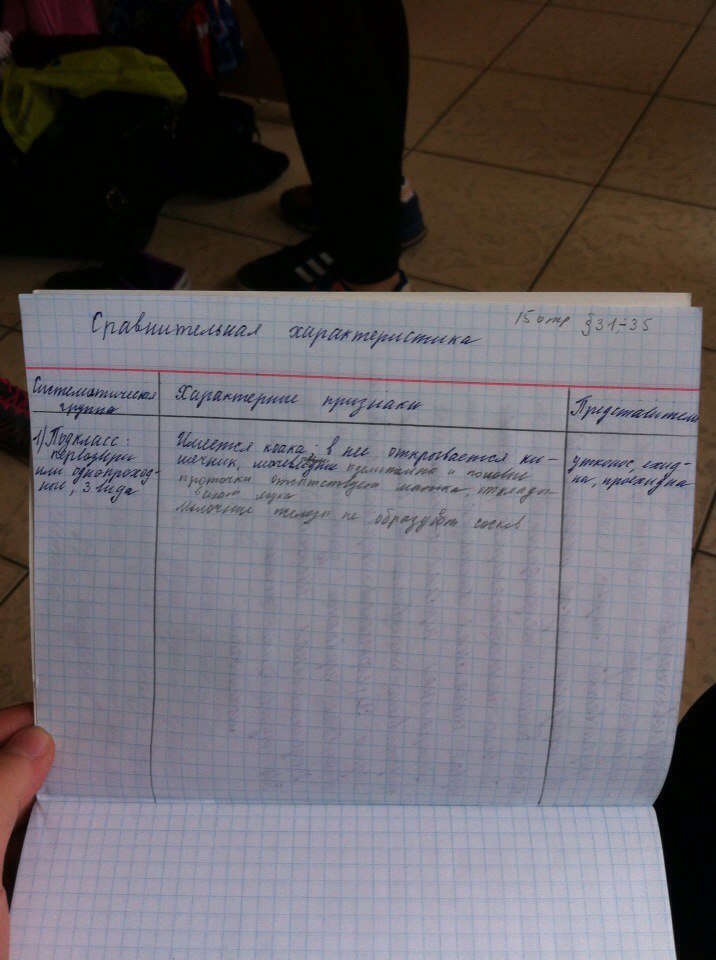 Сравнительная характеристика
15 стр §31-35
Систематическая
группа
Характерные признаки
Представители
1) Подкласс:
первозвери
или однопроход-
ные, 3 вида
Имеется клоака, в нее открывается ки-
шечник, и половы
протоки отсутствует матка, отклады-
яйца
Молочные железы не образуют сосков
утконос, ехид-
на, проехидна